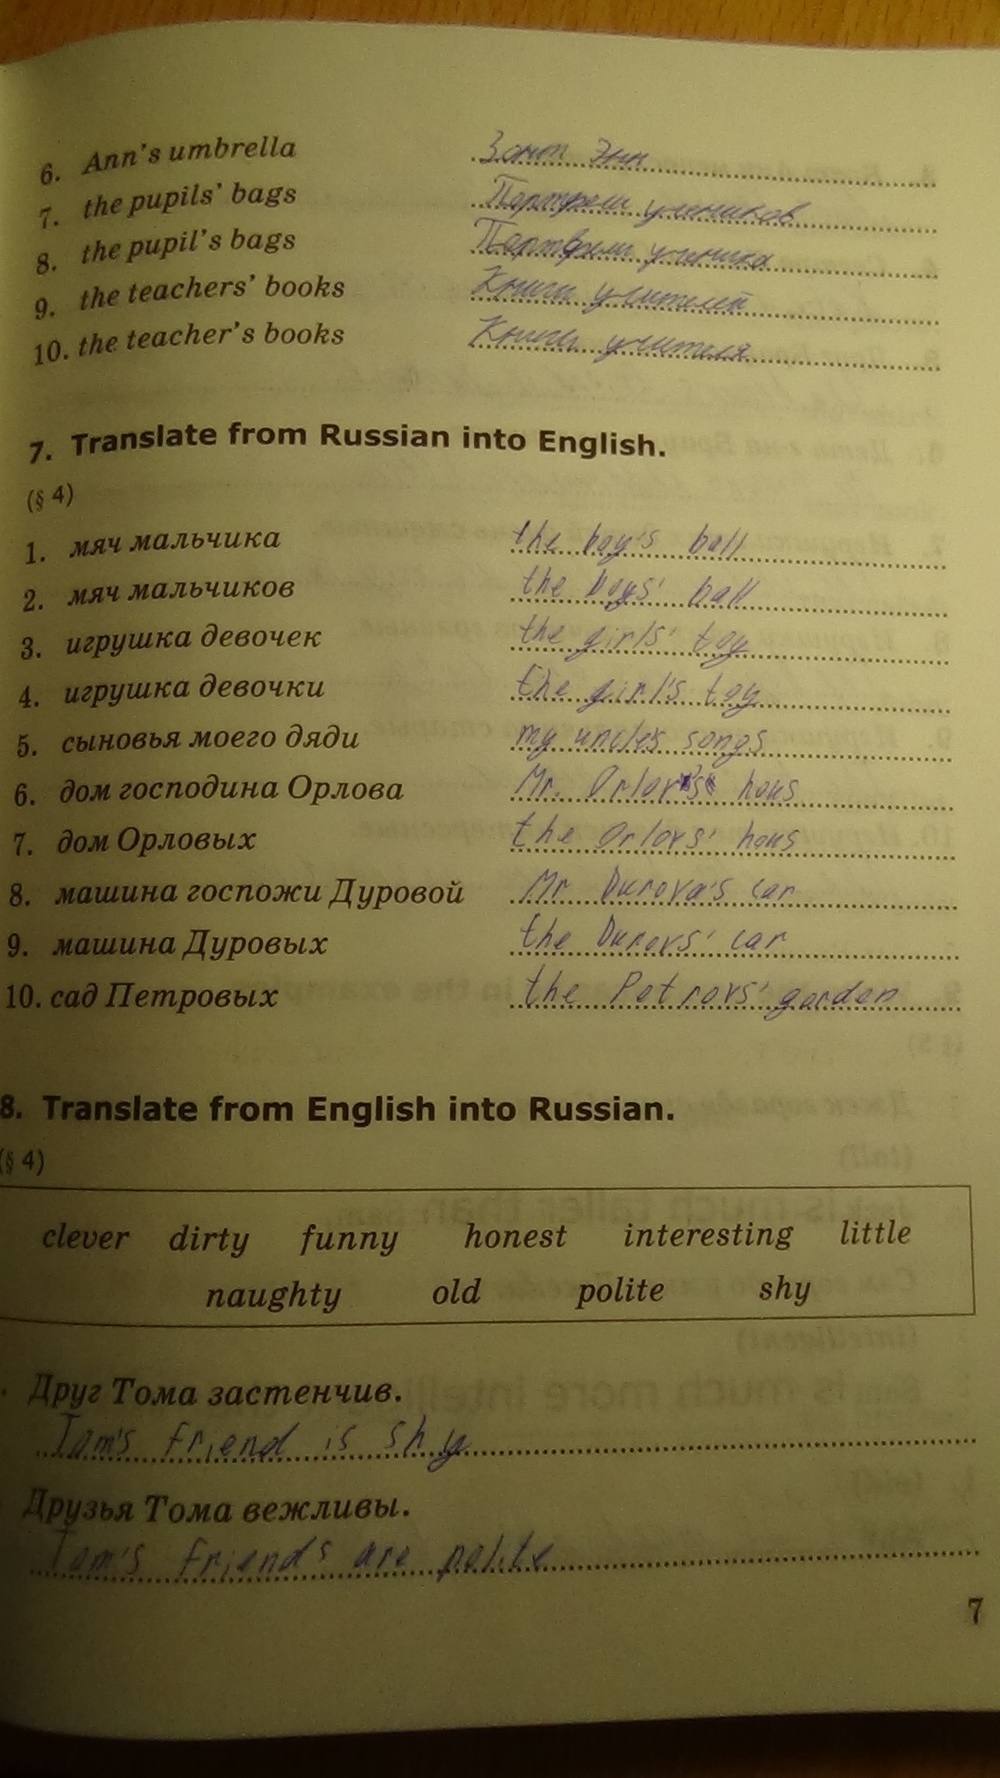 6. Ann's umbrella Зонт Энн
7. the pupils' bags Портфели учеников
8. the pupil's bags Портфели ученика
9. the teachers' books Книги учителей
10. the teacher's books Книги учителя
7. Translate from Russian into English.
(§ 4)
1. мяч мальчика the boy's ball
2. мяч мальчиков the boys' ball
3. игрушка девочек the girls' toy
4. игрушка девочки the girl's toy
5. сыновья моего дяди my uncles songs
6. дом господина Орлова Mr. Orlov's hous
7. дом Орловых the Orlovs' hous
8. машина госпожи Дуровой Mr Durova's car
9. машина Дуровых the Durovs' car
10. сад Петровых the Petrovs' garden
8. Translate from English into Russian.
(§ 4)
clever dirty funny honest interesting little
naughty old polite shy
Друг Тома застенчив.
Tom's friend is shy
Друзья Тома вежливы.
Tom's friends are polite
7